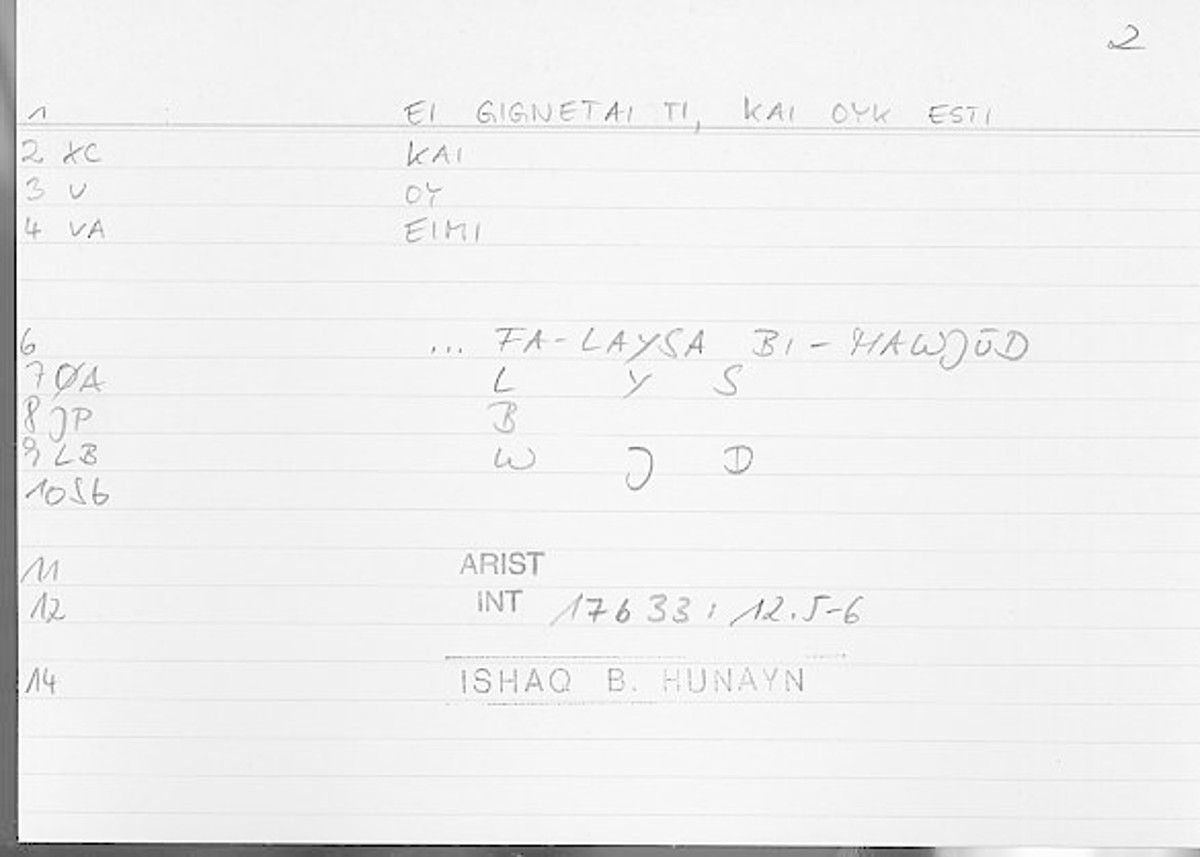 2
1 EI GIGNETAI TI, KAI OYK ESTI
2 XC KAI
3 V OY
4 VA EIMI
6 ... FA-LAYSA BI-MAWJŪD
7 ØA L Y S
8 JP B
9 LB W J D
10 56
11 ARIST
12 INT 17b33; 12.5-6
14 ISHAQ B. HUNAYN